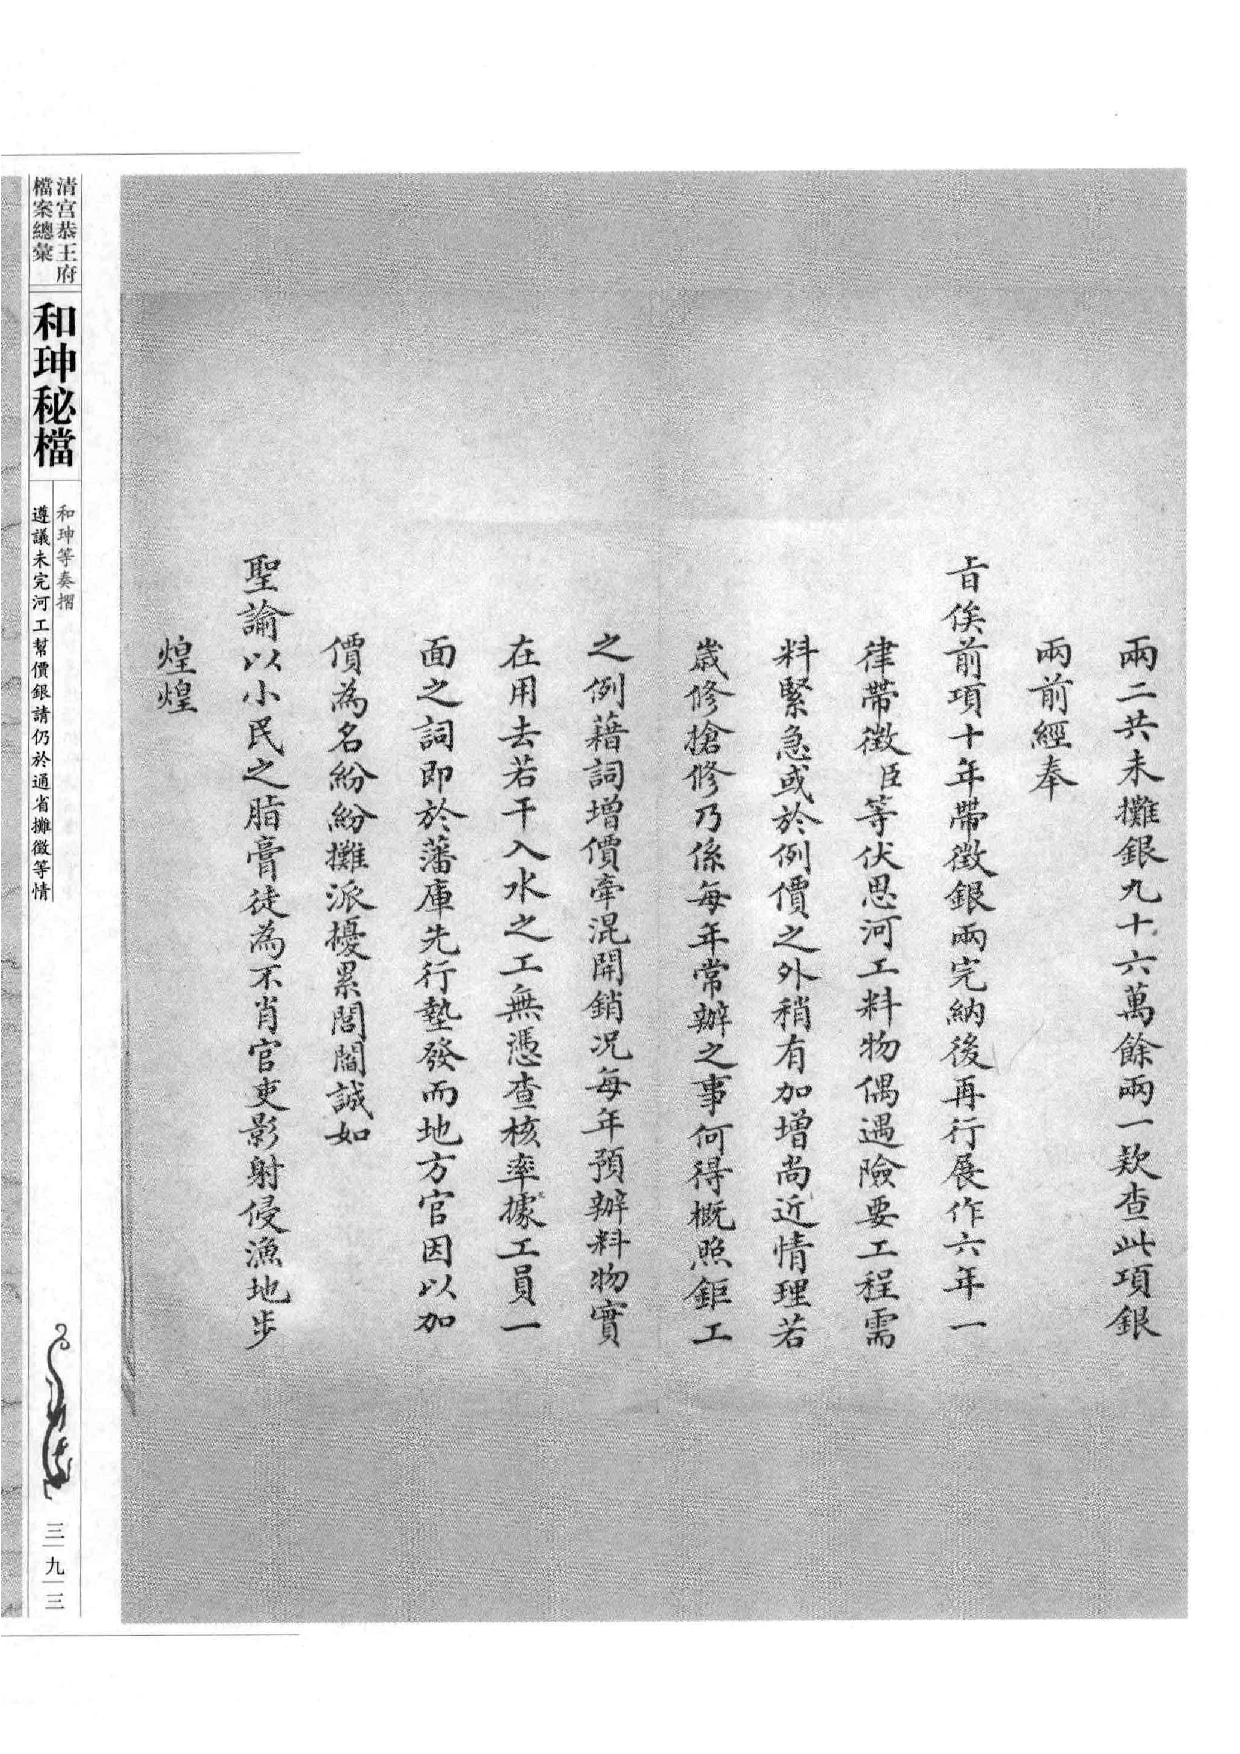 兩二共未攤銀九十六萬餘兩一款查此項銀
兩前經奉
旨俟前項十年帶徵銀兩完納後再行展作六年一
律帶徵臣等伏思河工料物偶遇險要工程需
料緊急或於例價之外稍有加增尚近情理若
歲修搶修乃係每年常辦之事何得概照鉅工
之例藉詞增價牽混開銷况每年預辦料物實
在用去若干入水之工無憑查核率據工員一
面之詞即於藩庫先行墊發而地方官因以加
價為名紛紛攤派擾累閭閻誠如
聖諭以小民之脂膏徒為不肖官吏影射侵漁地步
煌煌
清宮恭王府
檔案總彙
和珅秘檔
和珅等奏摺
遵議未完河工幫價銀請仍於通省攤徵等情
三九三